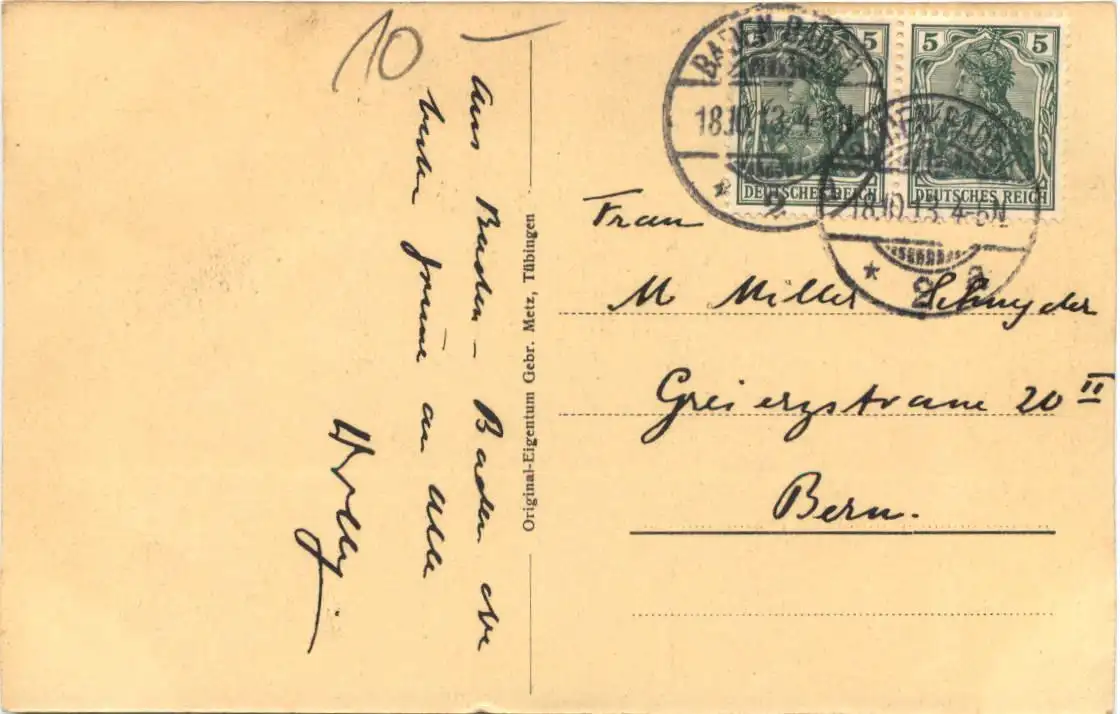 10
Aus Baden-Baden die
besten Grüsse an Alle
Willy.
Original-Eigentum Gebr. Metz, Tübingen
BADEN-BADEN
18.10.13. 4-5N.
* 2
BADEN-BADEN
18.10.13. 4-5N.
* 2 a
5
DEUTSCHES REICH
5
DEUTSCHES REICH
Frau
M Miller Schnyder
Greierzstrasse 20 II
Bern.